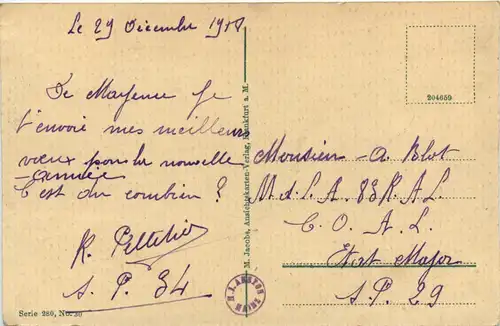 Le 29 Décembre 1918
204659
De Mayence je
t'envoie mes meilleurs
vœux pour la nouvelle
-année
C'est du combien ?
R. Pelletier
S. P. 34
M. Jacobs, Ansichtskarten-Verlag, Frankfurt a. M.
Monsieur A. Blot
83 R. A. L.
C. O. A. L.
Etat Major
S. P. 29
Serie 280, No. 30